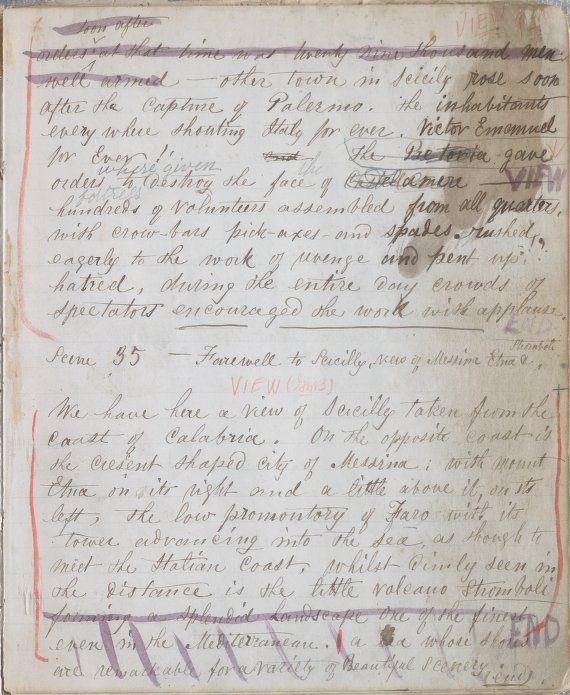 soon after VIEW
orders at that time was twenty nine thousand men
well armed — other town in Scicily rose soon
after the capture of Palermo. The inhabitants
every where shouting Italy for ever. Victor Emanuel
for Ever!! The gave
where given the
orders to destroy the face of VIEW
hundreds of volunteers assembled from all quarters,
with crow-bars pick-axes and spades rushed
eagerly to the work of revenge and pent up
hatred, during the entire day crowds of
spectators encouraged the work with applause.
END
Scene 35 — Farewell to Scicilly, view of Messina Etna &
Stromboli
VIEW
We have here a view of Scicilly taken from the
coast of Calabria. On the opposite coast is
the cresent shaped city of Messina; with mount
Etna on its right and a little above it, on its
left, the low promontory of Faro with its
tower advancing into the sea, as though to
meet the Italian Coast, whilst dimly seen in
the distance is the little volcano Stromboli
forming a splendid Landscape one of the finest
even in the Mediterranean. a sea whose shores END
are remarkable for a variety of Beautiful Scenery (end)